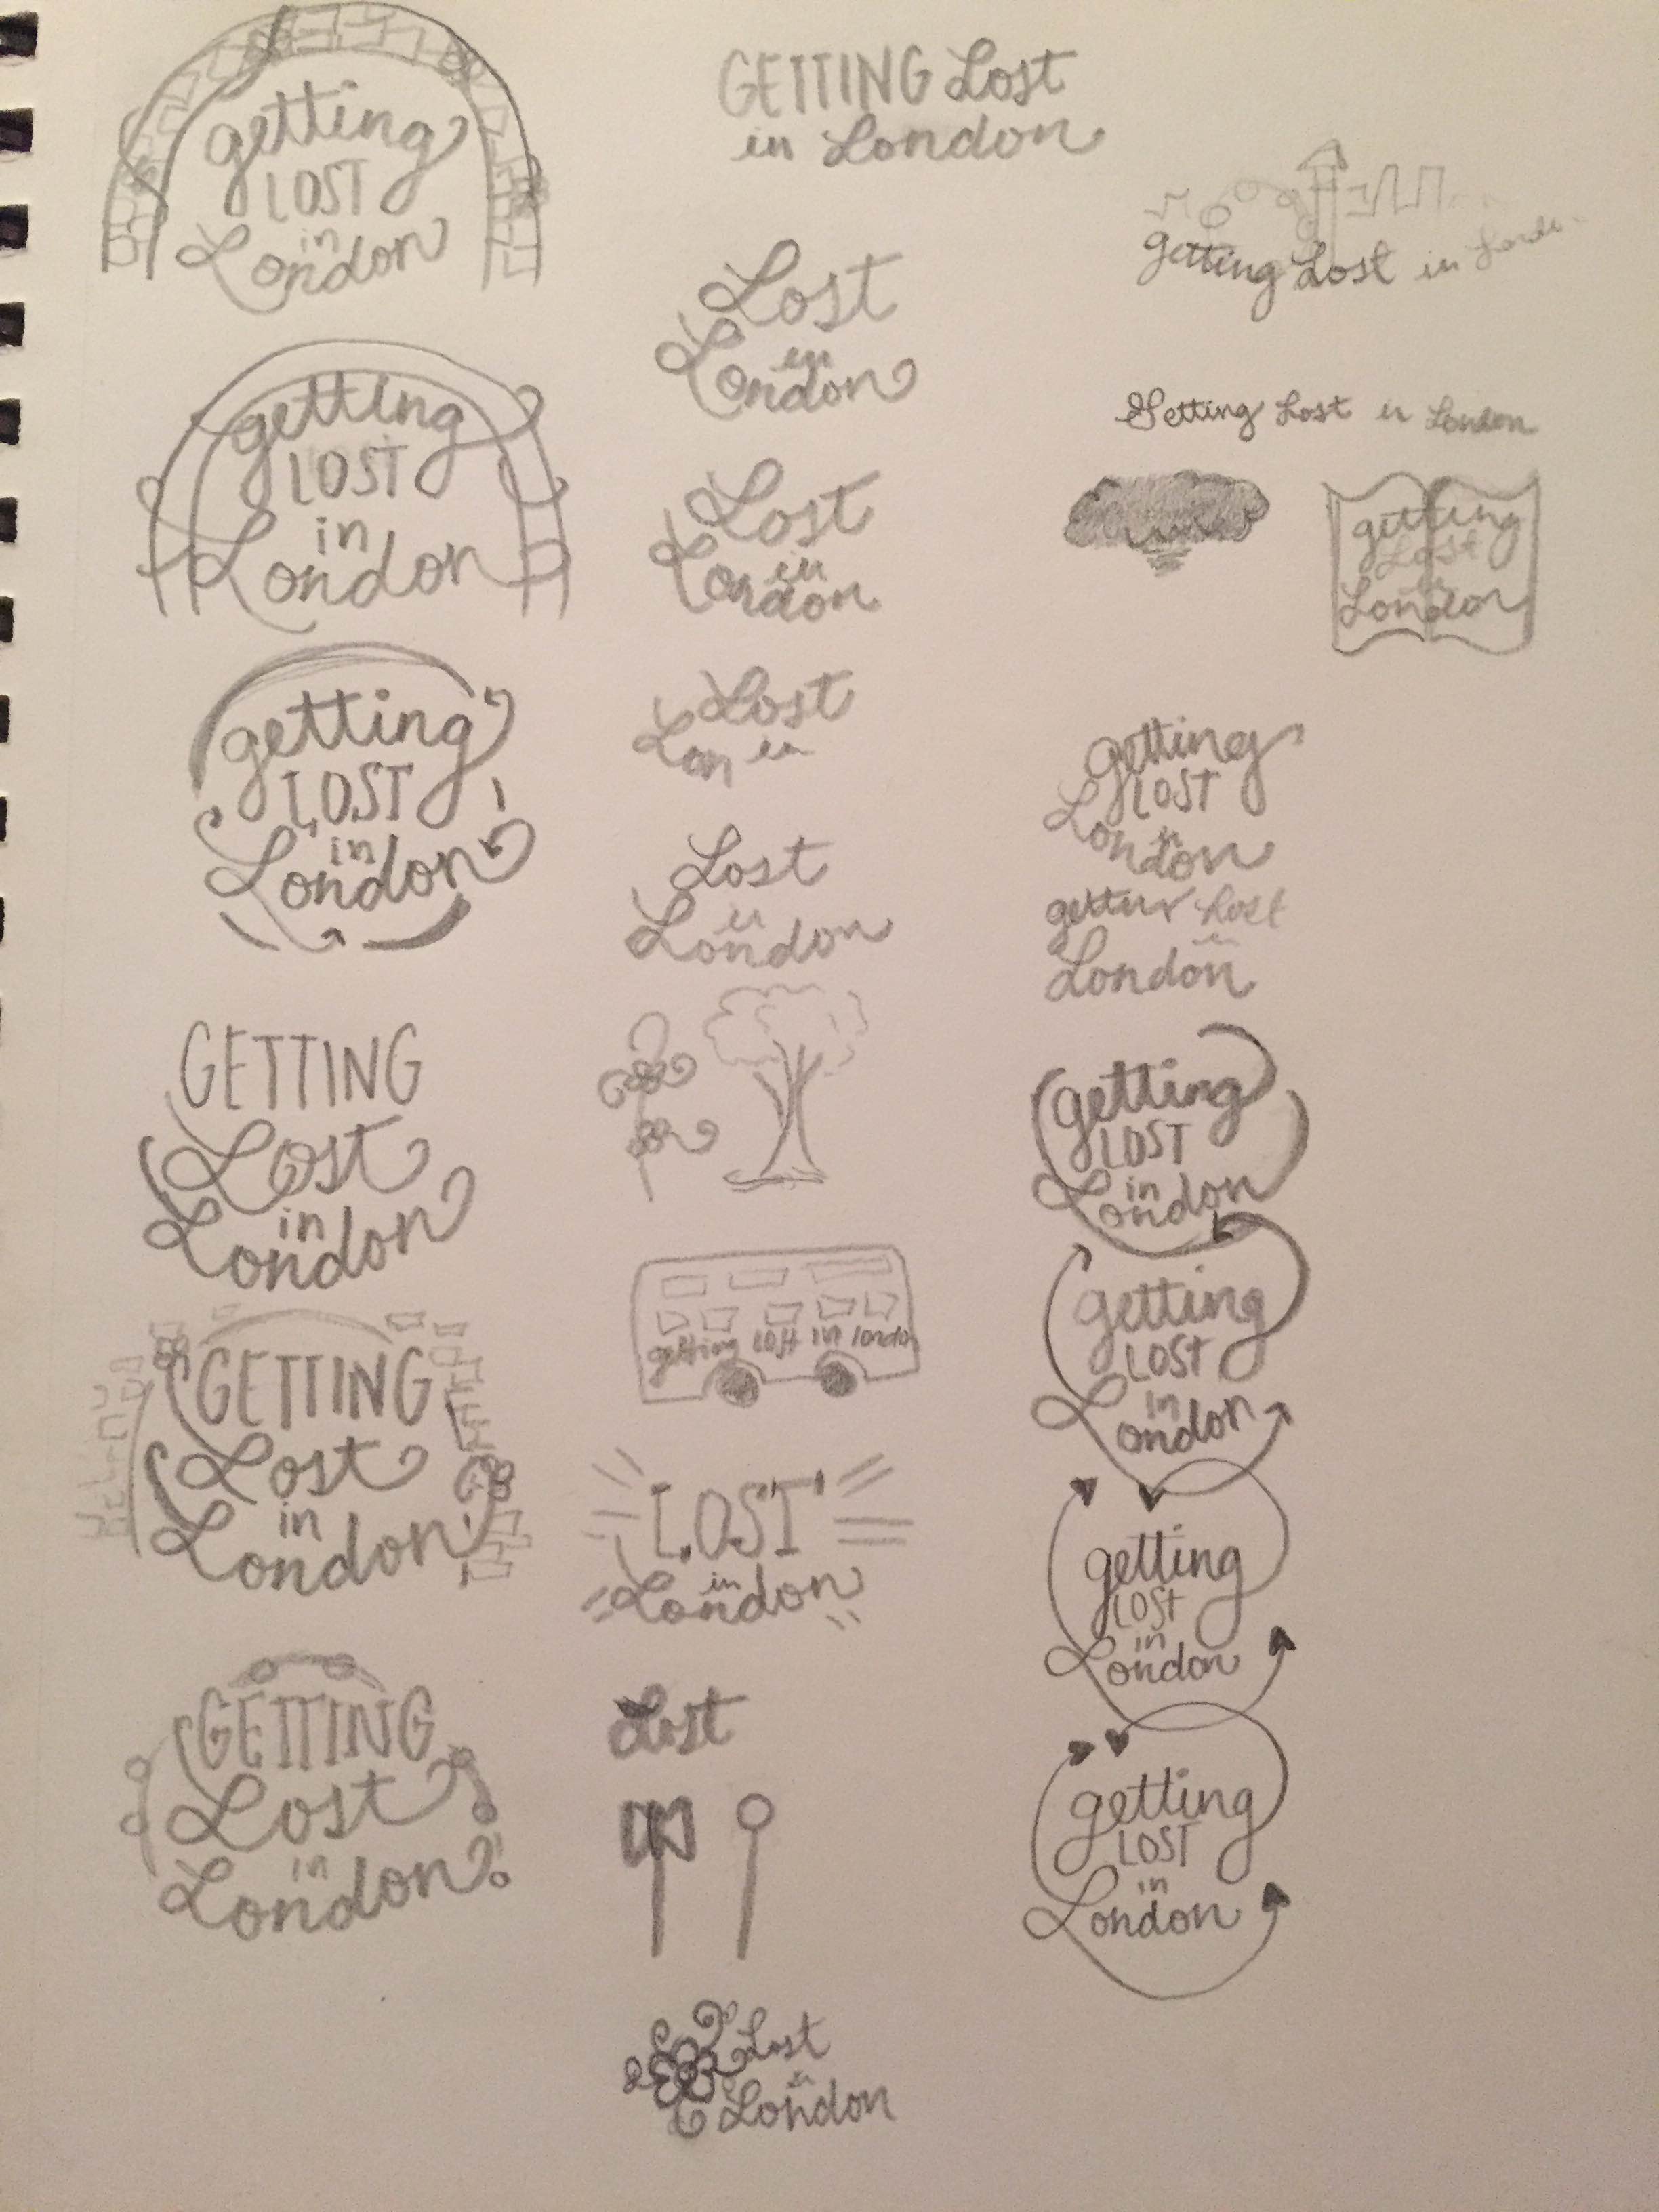 getting
LOST
in
London
getting
LOST
in
London
getting
LOST
in
London
GETTING
Lost
in
London
GETTING
Lost
in
London
GETTING
Lost
in
London
GETTING Lost
in London
Lost
in
London
Lost
in
London
Lost
Lon in
Lost
in
London
getting lost in london
LOST
in
London
Lost
Lost
in
London
getting Lost in
Getting Lost in London
getting
Lost
London
getting
LOST
in
London
Lost
in
London
getting
LOST
in
London
getting
LOST
in
London
getting
LOST
in
London
getting
LOST
in
London